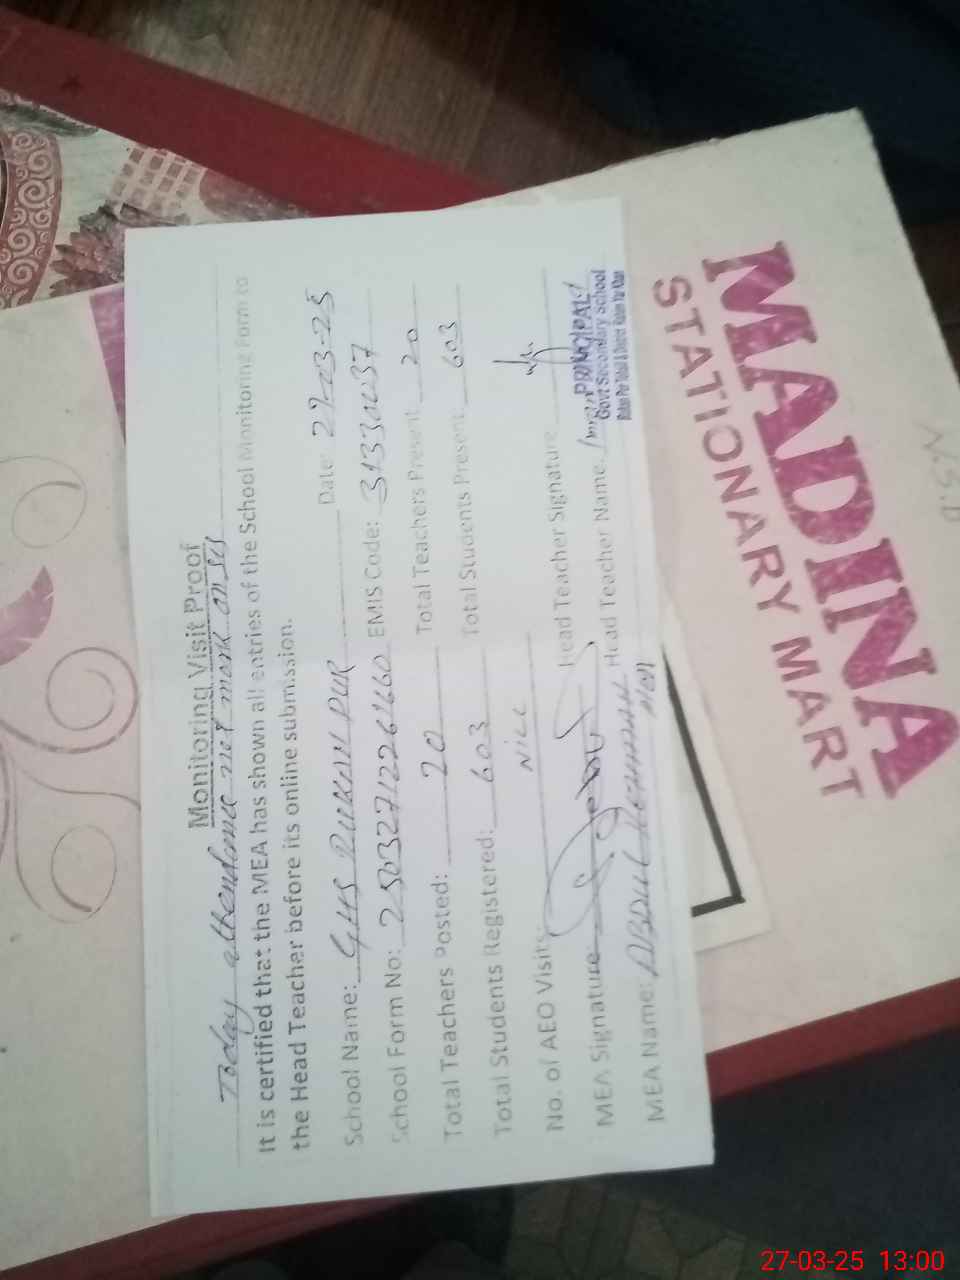 Monitoring Visit Proof
Today attendance not mark on SIS
It is certified that the MEA has shown all entries of the School Monitoring Form to
the Head Teacher before its online submission.
School Name: GHS RUKAN PUR Date: 27-03-25
School Form No: EMIS Code:
Total Teachers Posted: 20 Total Teachers Present 20
Total Students Registered: 603 Total Students Present 603
No. of AEO Visits: Nill Head Teacher Signature
MEA Signature: Head Teacher Name:
PRINCIPAL
Govt Secondary School
MEA Name: ABDUL REHMAN
MADINA
STATIONARY MART
27-03-25 13:00